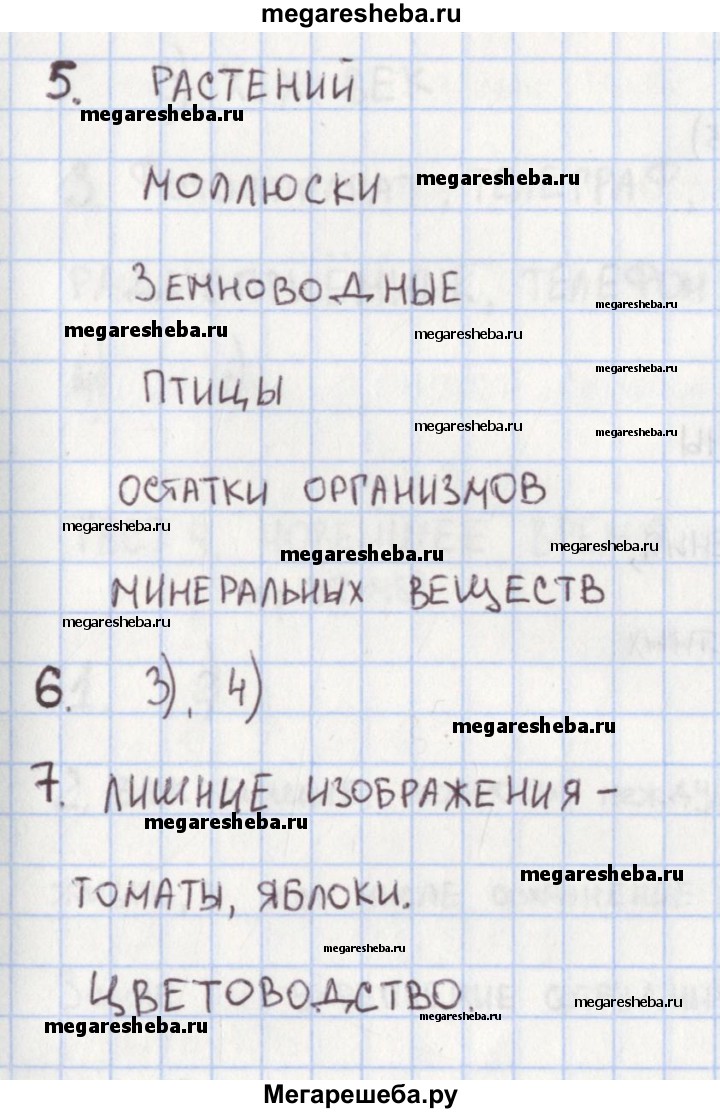 megaresheba.ru
5. РАСТЕНИЙ
megaresheba.ru
МОЛЛЮСКИ megaresheba.ru
ЗЕМНОВОДНЫЕ megaresheba.ru
megaresheba.ru megaresheba.ru
megaresheba.ru
ПТИЦЫ
megaresheba.ru megaresheba.ru
ОСТАТКИ ОРГАНИЗМОВ
megaresheba.ru
megaresheba.ru megaresheba.ru
МИНЕРАЛЬНЫХ ВЕЩЕСТВ
megaresheba.ru
6. 3), 4)
megaresheba.ru
7. ЛИШНИЕ ИЗОБРАЖЕНИЯ –
megaresheba.ru
megaresheba.ru
ТОМАТЫ, ЯБЛОКИ.
megaresheba.ru
ЦВЕТОВОДСТВО.
megaresheba.ru megaresheba.ru
Мегарешеба.ру